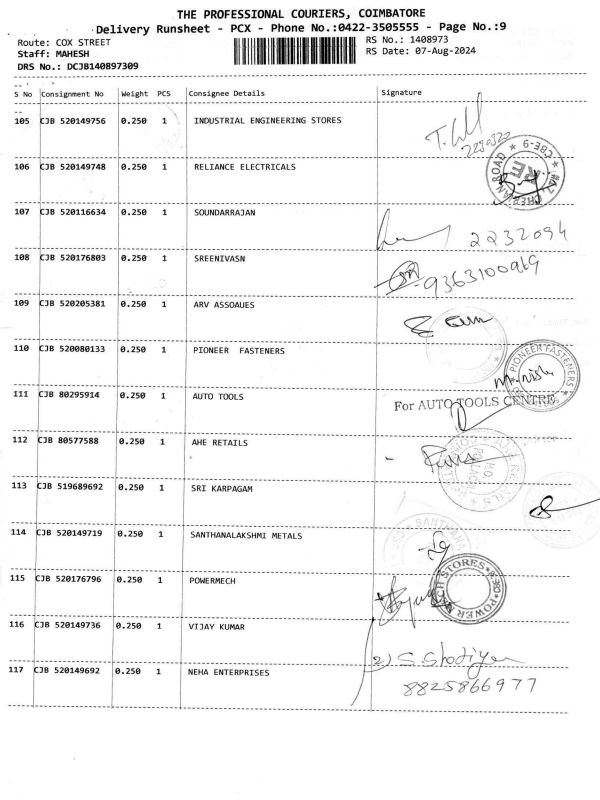 THE PROFESSIONAL COURIERS, COIMBATORE
Delivery Runsheet - PCX - Phone No.:0422-3505555 - Page No.:9
Route: COX STREET
RS No.: 1408973
Staff: MAHESH
RS Date: 07-Aug-2024
DRS No.: DCJB140897309
S No Consignment No Weight PCS Consignee Details Signature
105 CJB 520149756 0.250 1 INDUSTRIAL ENGINEERING STORES
106 CJB 520149748 0.250 1 RELIANCE ELECTRICALS
CBE-9
107 CJB 520116634 0.250 1 SOUNDARRAJAN
2232094
108 CJB 520176803 0.250 1 SREENIVASN
9363100969
109 CJB 520205381 0.250 1 ARV ASSOAUES
110 CJB 520080133 0.250 1 PIONEER FASTENERS
PIONEER FASTENERS
111 CJB 80295914 0.250 1 AUTO TOOLS
For AUTO TOOLS CENTRE
112 CJB 80577588 0.250 1 AHE RETAILS
113 CJB 519689692 0.250 1 SRI KARPAGAM
114 CJB 520149719 0.250 1 SANTHANALAKSHMI METALS
115 CJB 520176796 0.250 1 POWERMECH
116 CJB 520149736 0.250 1 VIJAY KUMAR
117 CJB 520149692 0.250 1 NEHA ENTERPRISES
8825866977